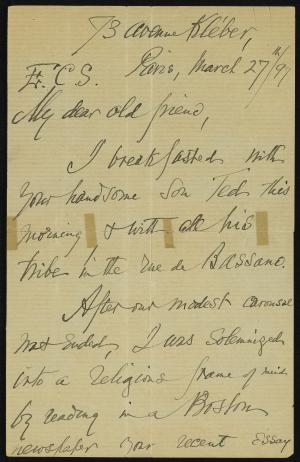 73 avenue Kléber,
E.C.S.
Paris, March 27th/97
My dear old friend,
I breakfasted with
your handsome son Ted this
morning & with all his
tribe in the rue de Bassano.
After our modest carouse
had ended, I was solemnized
into a religious frame of mind
by reading in a Boston
newspaper your recent essay